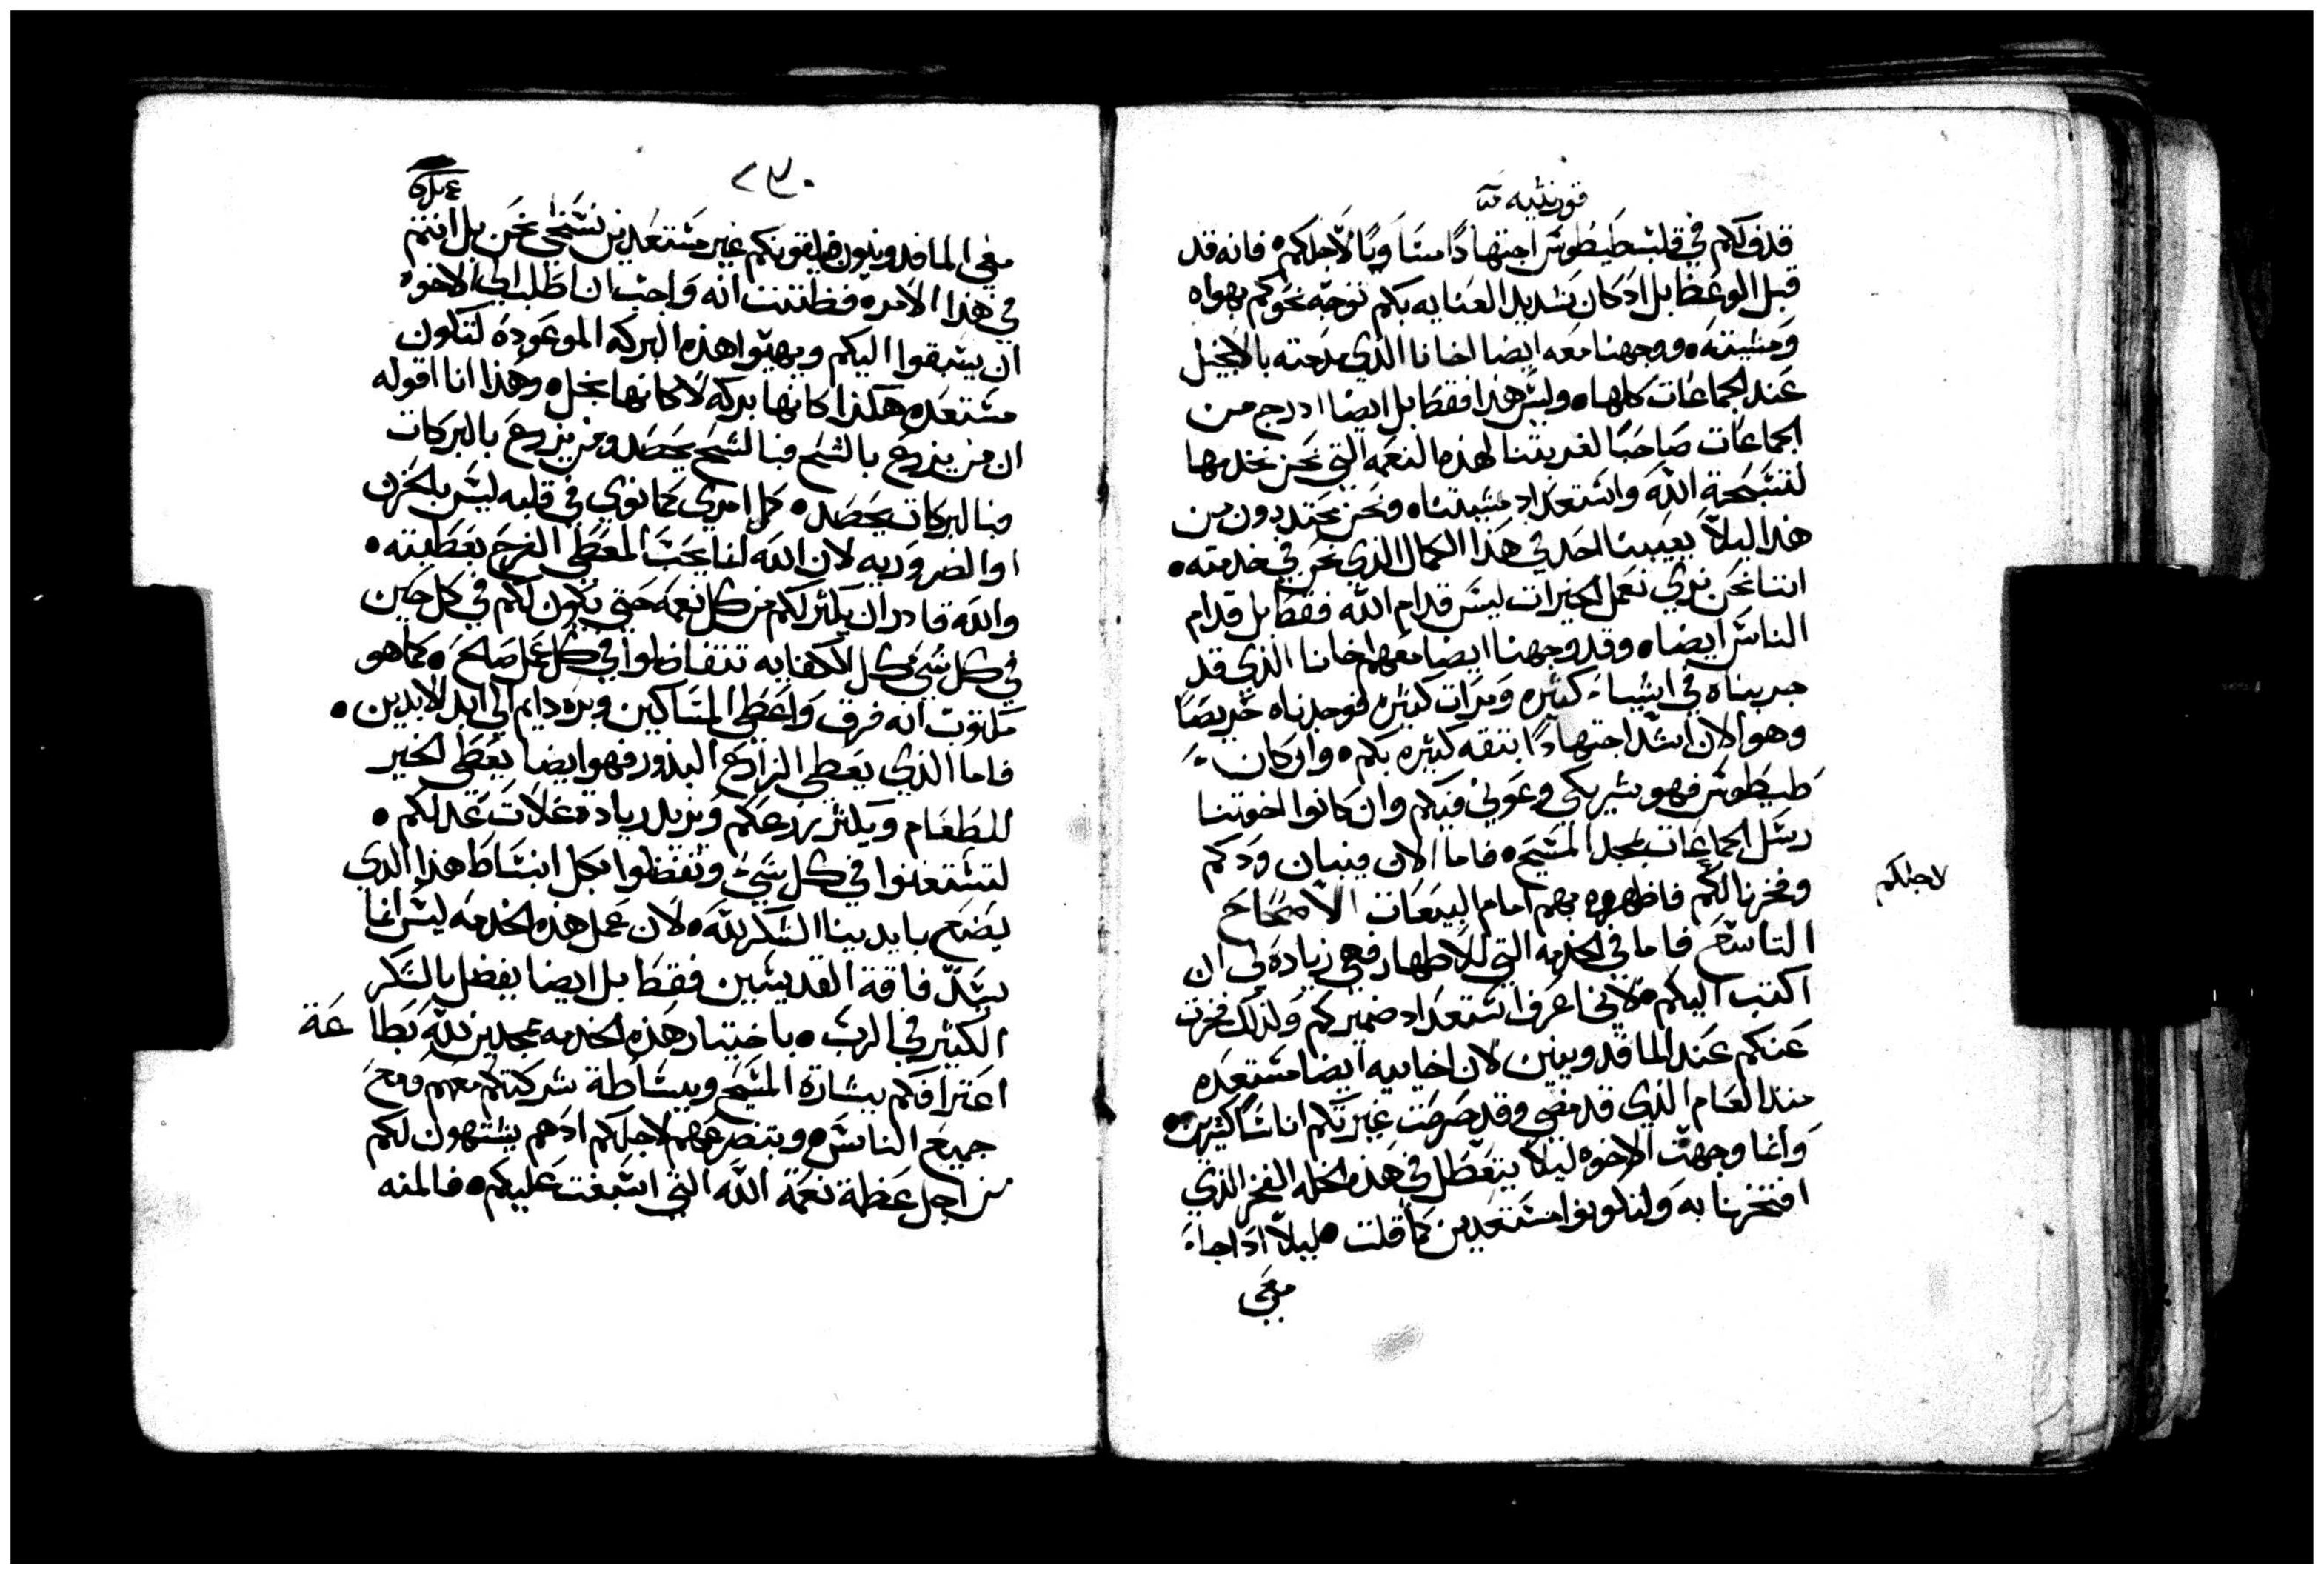 قورنثيه
قدف لكم في قلب طيطوس اجتهادًا متساويًا لاجلكم ٥ فانه قد
قبل الوعظ بل اذ كان شديد العنايه بكم توجه نحوكم بهواه
ومشيته ٥ ووجهنا معه ايضا اخانا الذي مدحته بالانجيل
عند الجماعات كلها ٥ وليس هذا فقط بل ايضا ادرج من
الجماعات صاحبًا لغربتنا لهذه النعمه التي نحن نخدمها
لتسبحة الله واستعداد مشيتنا ٥ ونحن محتدرون من
هذا ليلاّ يعيبنا احد في هذا الكمال الذي نحن في خدمته ٥
اننا نحن نري نعمل الخيرات ليس قدام الله فقط بل قدام
الناس ايضا ٥ وقد وجهنا ايضا معهم اخانا الذي قد
جربناه في اشياء كثيره ومرات كثيره فوجدناه حريصًا
وهو الان اشد اجتهادًا بثقه كثيره بكم ٥ وان كان
طيطوس فهو شريكي وعوني فيكم وان كانوا اخوتنا
رسل الجماعات بمجد المسيح ٥ فاما الان فبيان ودكم
وفخرنا لكم فاظهروه بهم امام البيعات الاصحاح
لاجلكم
التاسع فاما في الخدمه التي للاطهار فهي زيادة لي ان
اكتب اليكم ٥ لاني اعرف استعداد ضميركم ولذلك فخرت
عنكم عند الماقدونيين لان اخاييه ايضا مستعده
منذ العام الذي قد مضي وقد حرصت غيرتكم اناسًا كثيرين ٥
وانما وجهت الاخوه ليلا يتعطل في هذه الخله الفخر الذي
افتخرنا به ولتكونوا مستعدين كما قلت ٥ ليلاّ اذا جاء
معي
٢٣٠
معي الماقدونيون فيلقونكم غير مستعدين نستخي نحن بل انتم
في هذا الامر ٥ فظننت انه واجب ان اطلب الي الاخوه
ان يسبقوا اليكم ويهيوا هذه البركه الموعوده لتكون
مستعده هكذا كانها بركه لا كانها بخل ٥ وهذا انا اقوله
ان من يزرع بالشح فبالشح يحصد ومن يزرع بالبركات
فبالبركات يحصد ٥ كل امري كما نوي في قلبه ليس بالحزن
او الضروريه لان الله انما يحب المعطي الفرح بعطيته ٥
والله قادر ان يكثر لكم من كل نعمه حتي يكون لكم في كل حين
في كل شي كل الكفايه تتفاضلوا في كل عمل صالح ٥ كما هو
مكتوب انه فرق واعطي المساكين وبره دايم الي ابد الابدين ٥
فاما الذي يعطي الزارع البذور فهو ايضا يعطي الخبز
للطعام ويكثر زرعكم ويزيد زيادة غلات عدلكم ٥
لتستغنوا في كل شي وتفضلوا بكل انبساط هذا الذي
يصنع بايدينا الشكر لله ٥ لان عمل هذه الخدمه ليس انما
يسد فاقة القديسين فقط بل ايضا يفضل بالشكر
الكثير في الرب ٥ باختبار هذه الخدمه ممجدين لله بطاعة
اعترافكم ببشارة المسيح وببساطة شركتكم معهم ومع
جميع الناس ٥ وبتضرعهم لاجلكم اذ هم يشتهون لكم
من اجل عظمة نعمة الله التي اسبغت عليكم ٥ فالمنه